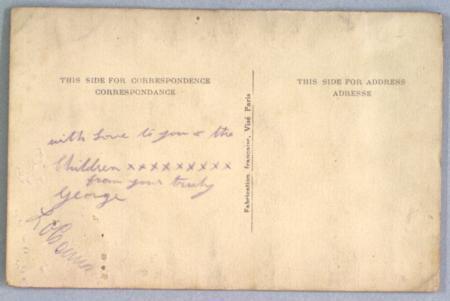 THIS SIDE FOR CORRESPONDENCE
CORRESPONDANCE
with Love to you & the
Children xxxxxxxxx
from your truly
George
Fabrication française, Visé Paris
THIS SIDE FOR ADDRESS
ADRESSE